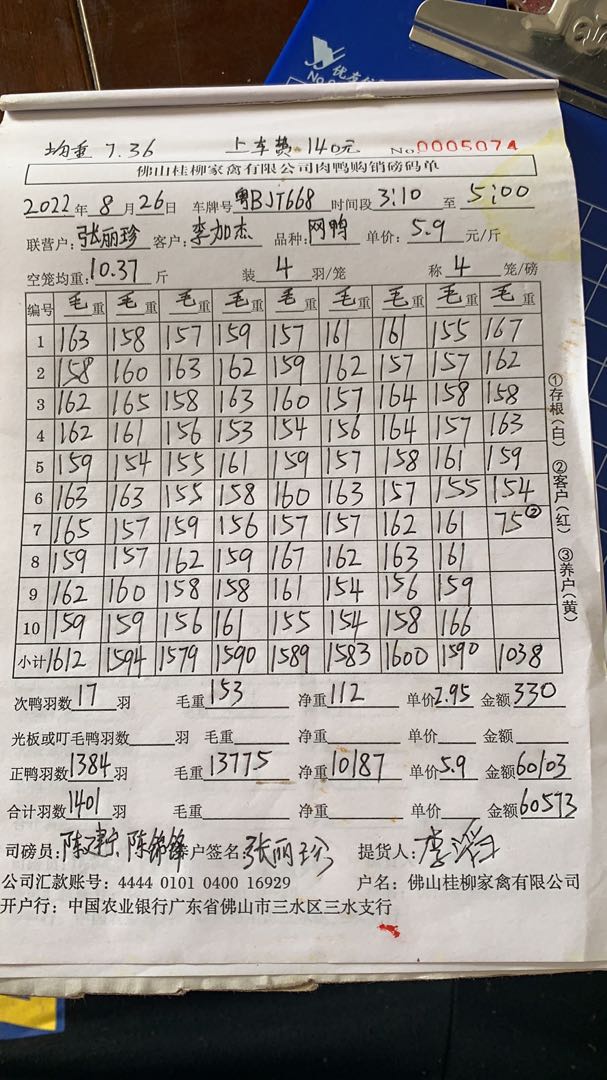 均重 7.36 上车费 140元 No 0005074
佛山桂柳家禽有限公司肉鸭购销磅码单
2022年8月26日 车牌号 粤BJT668 时间段 3:10 至 5:00
联营户: 张丽珍 客户: 李加杰 品种: 网鸭 单价: 5.9 元/斤
空笼均重: 10.37 斤 装 4 羽/笼 称 4 笼/磅
编号 毛重 毛重 毛重 毛重 毛重 毛重 毛重 毛重 毛重
1 163 158 157 159 157 161 161 155 167
2 158 160 163 162 159 162 157 157 162
3 162 165 158 163 160 157 164 158 158
4 162 161 156 153 154 156 164 157 163
5 159 154 155 161 159 157 158 161 159
6 163 163 155 158 160 163 157 155 154
7 165 157 159 156 157 157 162 161 75②
8 159 157 162 159 167 162 163 161
9 162 160 158 158 161 154 156 159
10 159 159 156 161 155 154 158 166
小计 1612 1594 1579 1590 1589 1583 1600 1590 1038
①存根(白) ②客户(红) ③养户(黄)
次鸭羽数 17 羽 毛重 153 净重 112 单价 2.95 金额 330
光板或叮毛鸭羽数 羽 毛重 净重 单价 金额
正鸭羽数 1384 羽 毛重 13775 净重 10187 单价 5.9 金额 60103
合计羽数 1401 羽 毛重 净重 单价 金额 60573
司磅员: 陈建宁、陈锦锋 养户签名: 张丽珍 提货人: 李
公司汇款账号: 4444 0101 0400 16929 户名: 佛山桂柳家禽有限公司
开户行: 中国农业银行广东省佛山市三水区三水支行